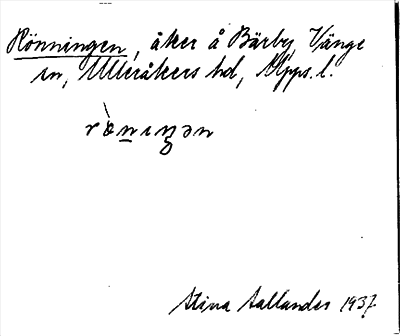 Rönningen, åker å Bärby, Vänge
sn, Ulleråkers hd, Upps. l.
rö̀nıŋən
Stina Aallander 1937